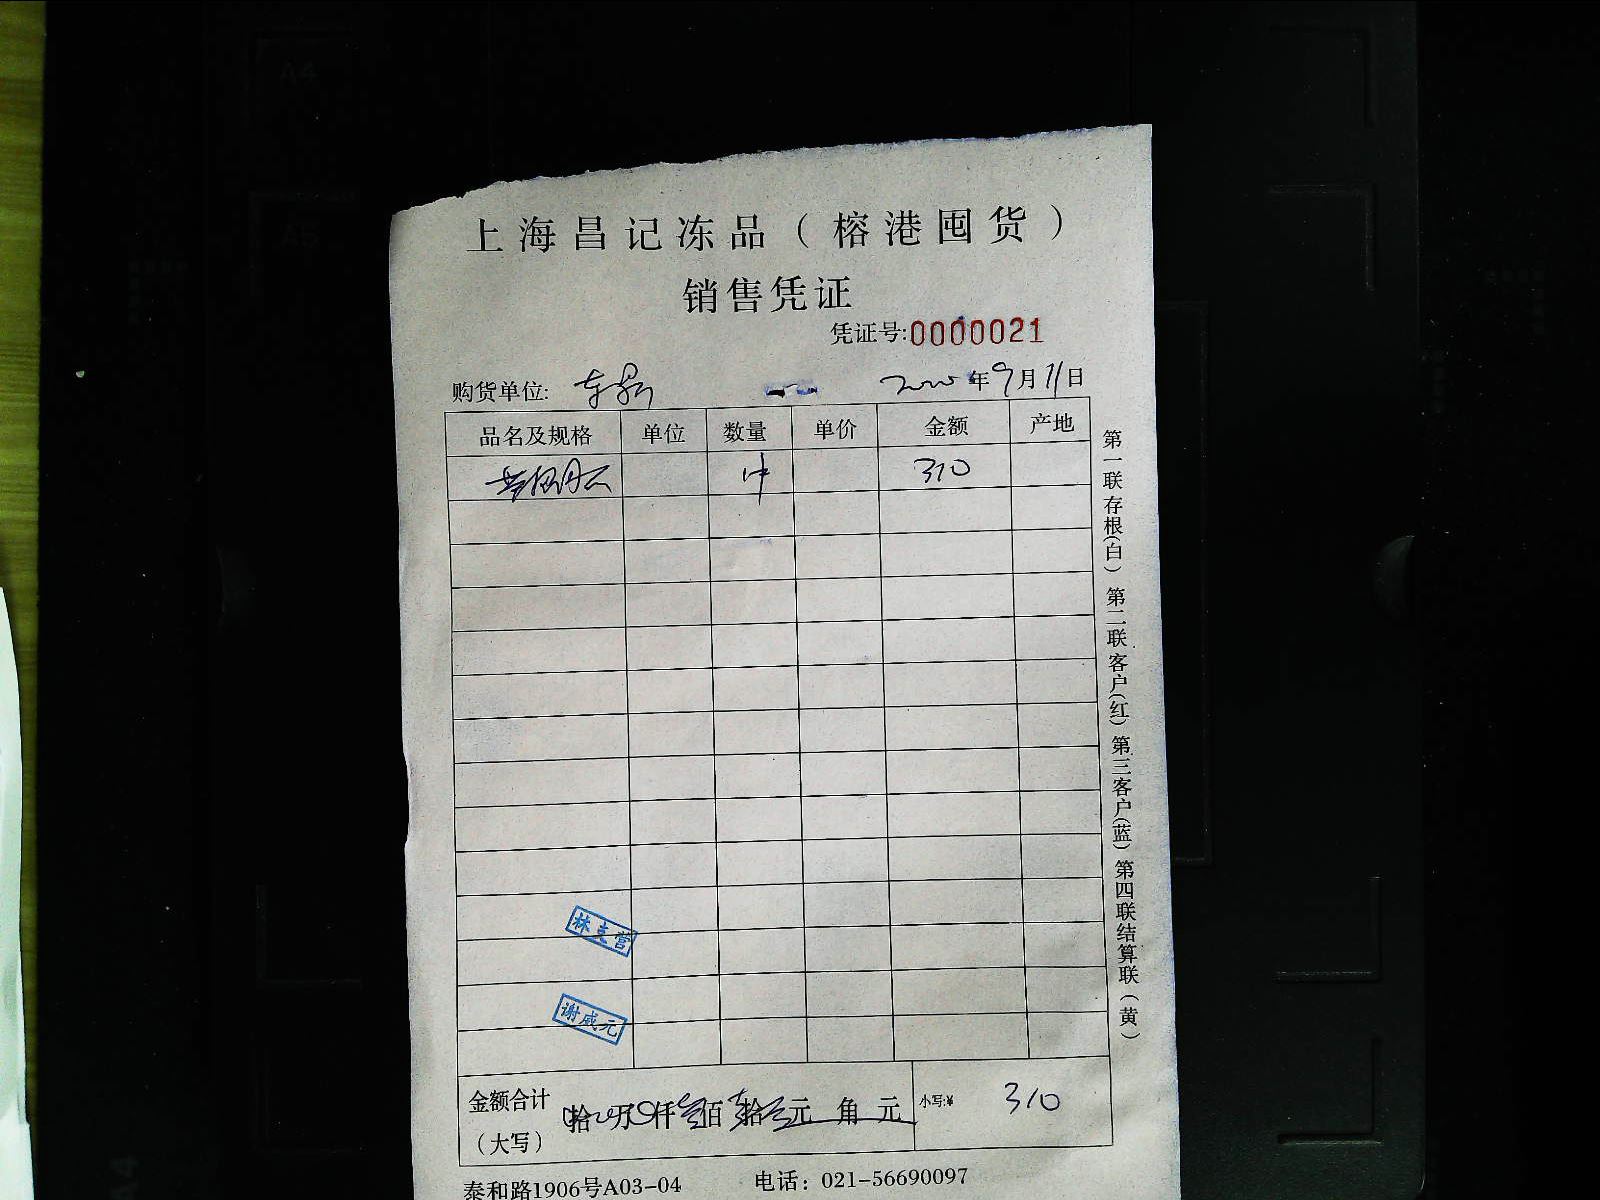 上海昌记冻品（榕港囤货）
销售凭证
凭证号:0000021
购货单位: 年9月11日
品名及规格 单位 数量 单价 金额 产地
1件 310
林主营
谢咸元
金额合计（大写） 拾 万 仟 佰 拾 元 角 元 小写:¥ 310
泰和路1906号A03-04 电话：021-56690097
第一联存根(白) 第二联客户(红) 第三客户(蓝) 第四联结算联（黄）
A4
A5